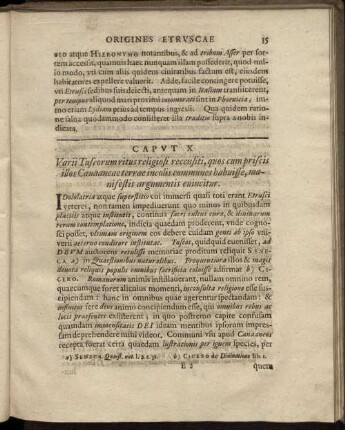 ORIGINES ETRVSCAE 15
BIO atque HIERONYMO notantibus, & ad tribum Aser per sor-
tem accessit, quamuis haec nunquam illam possederit, quod nul-
lo modo, vti cum aliis quidem ciuitatibus factum est, eiusdem
habitatores expellere valuerit. Adde, facile contingere potuisse,
vti Etrusci sedibus suis deiecti, antequam in Italiam transiicerent,
per tempus aliquod mari proximi commorati sint in Phoenicia, im-
mo etiam Lydiam prius ad tempus ingressi. Quo quidem ratio-
ne salua quodammodo consisteret illa traditio supra a nobis in-
dicata.
CAPVT X
Varii Tuscorum ritus religiose recensiti, quos cum priscis
illos Cananaeae terrae incolis communes habuisse, ma-
nifestis argumentis euincitur.
IDololatria atque superstitio cui immersi quasi toti erant Etrusci
veteres, non tamen impediuerant quo minus in quibusdam
placitis atque institutis, continua sacri cultus cura, & diuinarum
rerum contemplatione, indicta quaedam proderent, vnde cognos-
ci posset, vltimam originem eos debere cuidam genti ab ipso vni-
uersi aeterno conditore institutae. Tuscos, quidquid euenisset, ad
DEVM auctorem retulisse memoriae proditum reliquit SENE-
CA a) in Quaestionibus naturalibus. Frequentiora illos & magis
deuota reliquis populis omnibus sacrificia coluisse adfirmat b) CI-
CERO. Romanorum animis instillauerant, nullam omnem rem,
quaecumque foret alicuius momenti, inconsulta religione esse sus-
cipiendam: hanc in omnibus quae agerentur spectandam: &
instinctus fere deus animo concipiendum esse, qui omnibus rebus ac
locis praesentes existerent; in quo postremo capite confusam
quamdam immensitatis DEI ideam mentibus ipsorum impres-
sam deprehendere mihi videor. Communi vsu apud Cananaeos
recepta fuerat certa quaedam lustrationis per ignem species, per
a) SENECA Quaest. nat. l. 2. c. 31. b) CICERO de Diuinatione lib. 1.
E 2 quem